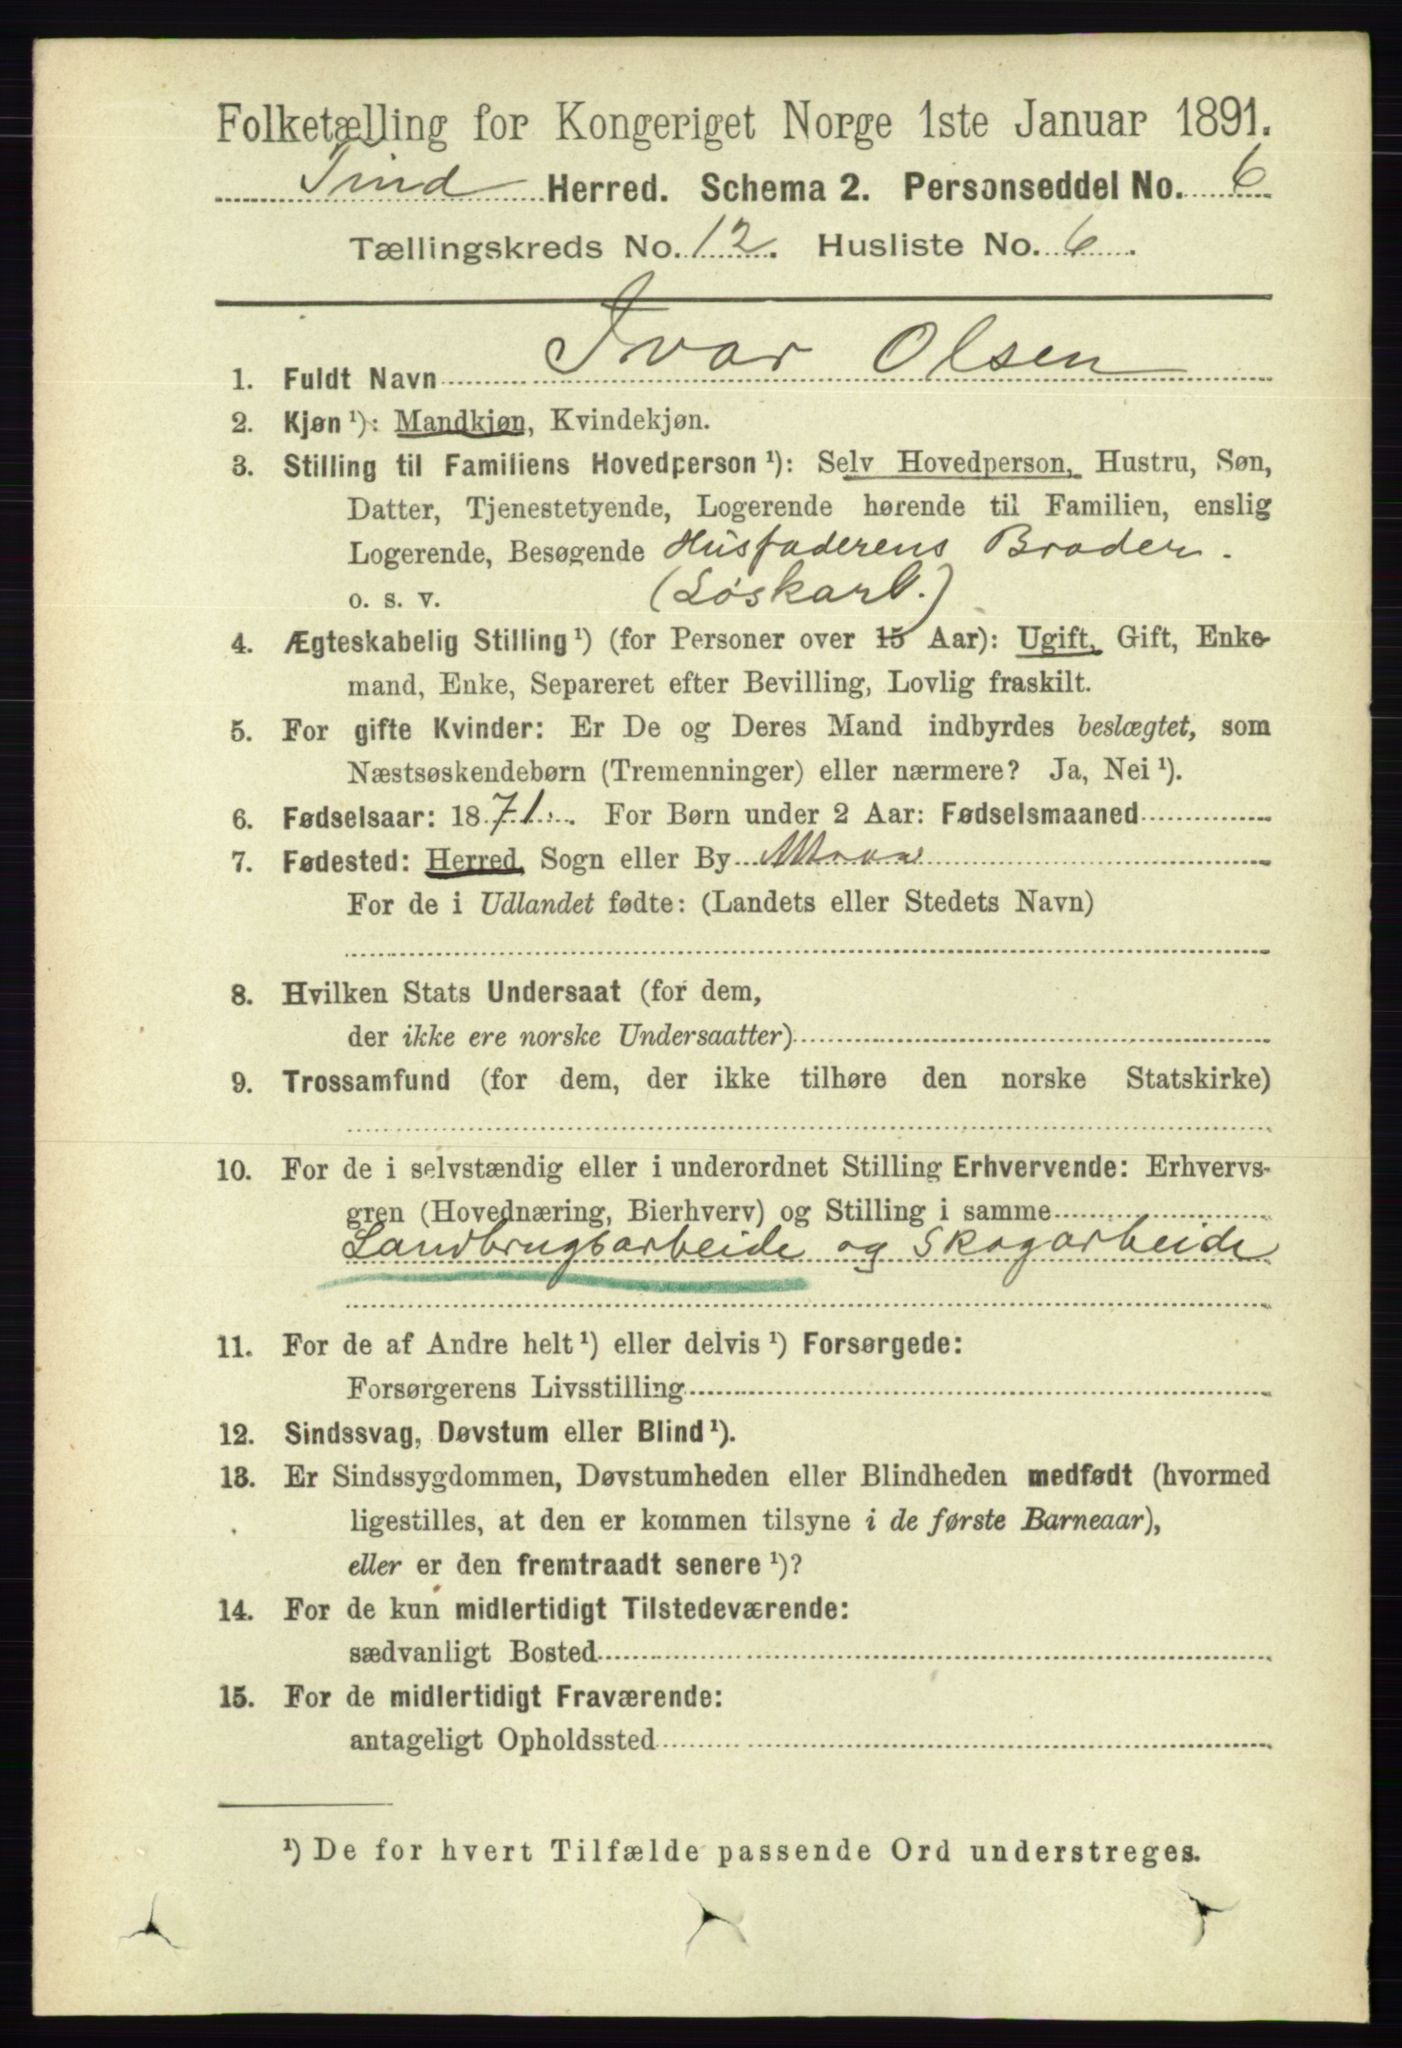 Folketælling for Kongeriget Norge 1ste Januar 1891.
Tind Herred. Schema 2. Personseddel No. 6
Tællingskreds No. 12. Husliste No. 6.
1. Fuldt Navn Ivar Olsen
2. Kjøn ¹): Mandkjøn, Kvindekjøn.
3. Stilling til Familiens Hovedperson ¹): Selv Hovedperson, Hustru, Søn,
Datter, Tjenestetyende, Logerende hørende til Familien, enslig
Logerende, Besøgende Husfaderens Broder.
o. s. v. (Løskarl.)
4. Ægteskabelig Stilling ¹) (for Personer over 15 Aar): Ugift, Gift, Enke-
mand, Enke, Separeret efter Bevilling, Lovlig fraskilt.
5. For gifte Kvinder: Er De og Deres Mand indbyrdes beslægtet, som
Næstsøskendebørn (Tremenninger) eller nærmere? Ja, Nei ¹).
6. Fødselsaar: 1871. For Børn under 2 Aar: Fødselsmaaned
7. Fødested: Herred, Sogn eller By
For de i Udlandet fødte: (Landets eller Stedets Navn)
8. Hvilken Stats Undersaat (for dem,
der ikke ere norske Undersaatter)
9. Trossamfund (for dem, der ikke tilhøre den norske Statskirke)
10. For de i selvstændig eller i underordnet Stilling Erhvervende: Erhvervs-
gren (Hovednæring, Bierhverv) og Stilling i samme
Landbrugsarbeide og Skogarbeide
11. For de af Andre helt ¹) eller delvis ¹) Forsørgede:
Forsørgerens Livsstilling
12. Sindssvag, Døvstum eller Blind ¹).
13. Er Sindssygdommen, Døvstumheden eller Blindheden medfødt (hvormed
ligestilles, at den er kommen tilsyne i de første Barneaar),
eller er den fremtraadt senere ¹)?
14. For de kun midlertidigt Tilstedeværende:
sædvanligt Bosted
15. For de midlertidigt Fraværende:
antageligt Opholdssted
¹) De for hvert Tilfælde passende Ord understreges.